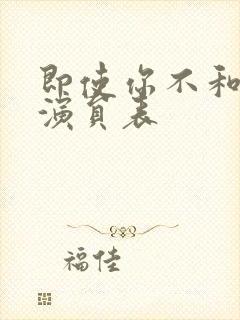 即使你不和
演員表
福佳